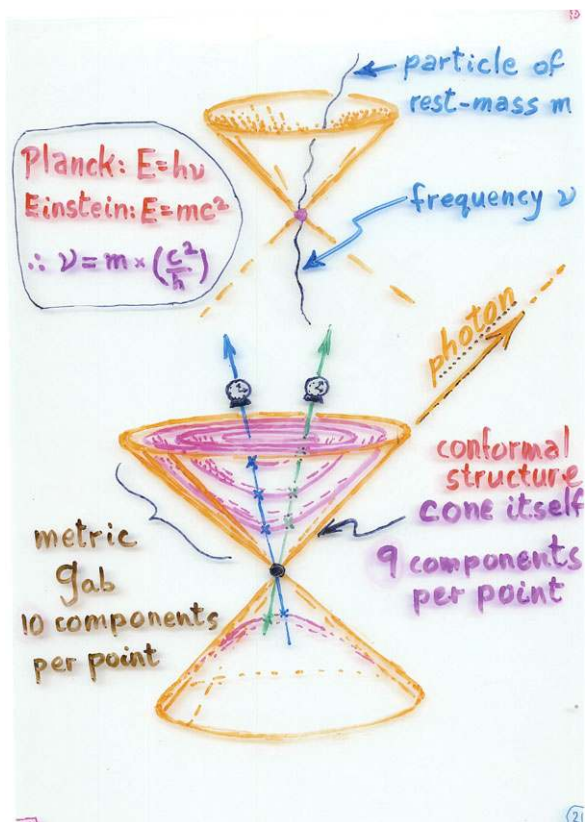 particle of
rest-mass m
Planck: E=hν
Einstein: E=mc²
∴ ν = m × (c²/h)
frequency ν
photon
conformal
structure
cone itself
9 components
per point
metric
gab
10 components
per point
21